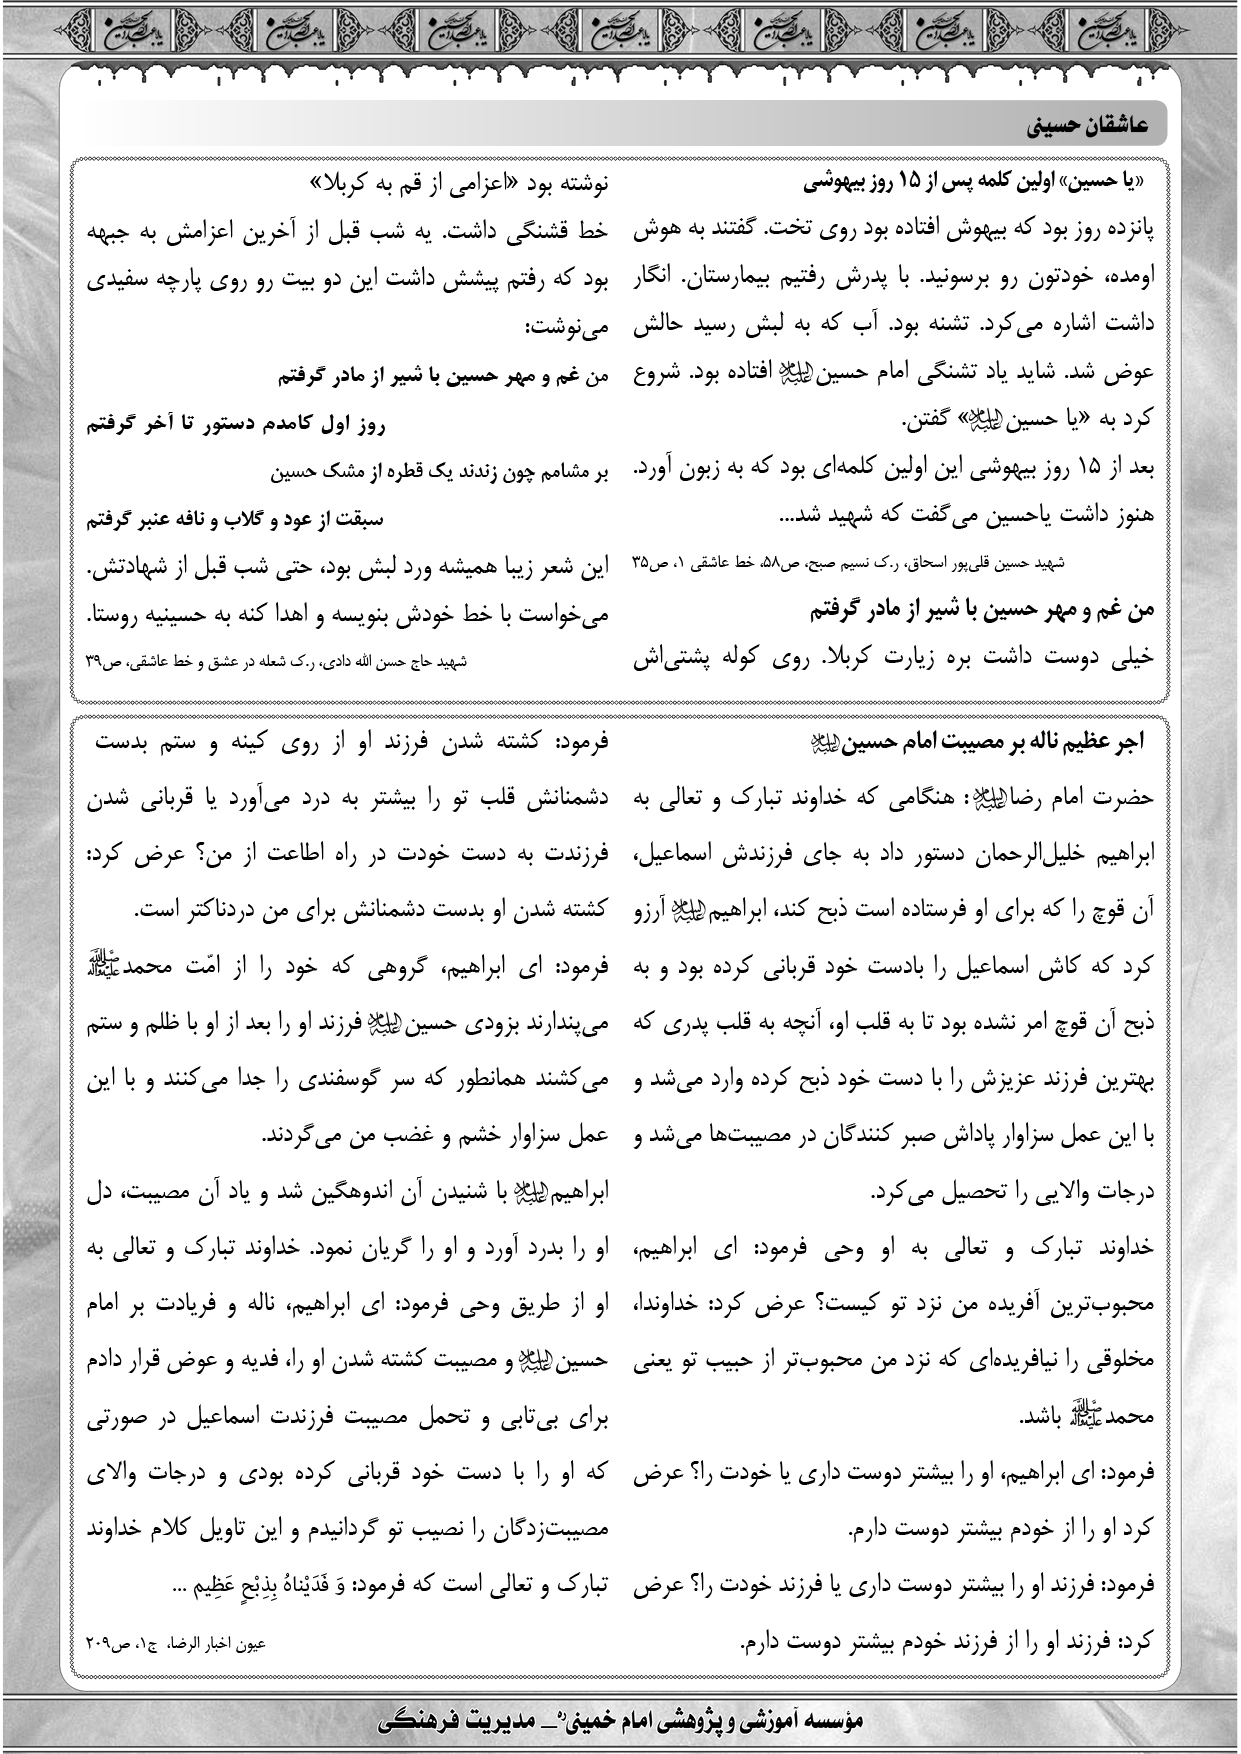 عاشقان حسینی
«یا حسین» اولین کلمه پس از ۱۵ روز بیهوشی
پانزده روز بود که بیهوش افتاده بود روی تخت. گفتند به هوش
اومده، خودتون رو برسونید. با پدرش رفتیم بیمارستان. انگار
داشت اشاره می‌کرد. تشنه بود. آب که به لبش رسید حالش
عوض شد. شاید یاد تشنگی امام حسین علیه‌السلام افتاده بود. شروع
کرد به «یا حسین علیه‌السلام» گفتن.
بعد از ۱۵ روز بیهوشی این اولین کلمه‌ای بود که به زبون آورد.
هنوز داشت یاحسین می‌گفت که شهید شد...
شهید حسین قلی‌پور اسحاق، ر.ک نسیم صبح، ص۵۸، خط عاشقی ۱، ص۳۵
من غم و مهر حسین با شیر از مادر گرفتم
خیلی دوست داشت بره زیارت کربلا. روی کوله پشتی‌اش
نوشته بود «اعزامی از قم به کربلا»
خط قشنگی داشت. یه شب قبل از آخرین اعزامش به جبهه
بود که رفتم پیشش داشت این دو بیت رو روی پارچه سفیدی
می‌نوشت:
من غم و مهر حسین با شیر از مادر گرفتم
روز اول کامدم دستور تا آخر گرفتم
بر مشامم چون زندند یک قطره از مشک حسین
سبقت از عود و گلاب و نافه عنبر گرفتم
این شعر زیبا همیشه ورد لبش بود، حتی شب قبل از شهادتش.
می‌خواست با خط خودش بنویسه و اهدا کنه به حسینیه روستا.
شهید حاج حسن الله دادی، ر.ک شعله در عشق و خط عاشقی، ص۳۹
اجر عظیم ناله بر مصیبت امام حسین علیه‌السلام
حضرت امام رضا علیه‌السلام: هنگامی که خداوند تبارک و تعالی به
ابراهیم خلیل‌الرحمان دستور داد به جای فرزندش اسماعیل،
آن قوچ را که برای او فرستاده است ذبح کند، ابراهیم علیه‌السلام آرزو
کرد که کاش اسماعیل را بادست خود قربانی کرده بود و به
ذبح آن قوچ امر نشده بود تا به قلب او، آنچه به قلب پدری که
بهترین فرزند عزیزش را با دست خود ذبح کرده وارد می‌شد و
با این عمل سزاوار پاداش صبر کنندگان در مصیبت‌ها می‌شد و
درجات والایی را تحصیل می‌کرد.
خداوند تبارک و تعالی به او وحی فرمود: ای ابراهیم،
محبوب‌ترین آفریده من نزد تو کیست؟ عرض کرد: خداوندا،
مخلوقی را نیافریده‌ای که نزد من محبوب‌تر از حبیب تو یعنی
محمد ﷺ باشد.
فرمود: ای ابراهیم، او را بیشتر دوست داری یا خودت را؟ عرض
کرد او را از خودم بیشتر دوست دارم.
فرمود: فرزند او را بیشتر دوست داری یا فرزند خودت را؟ عرض
کرد: فرزند او را از فرزند خودم بیشتر دوست دارم.
فرمود: کشته شدن فرزند او از روی کینه و ستم بدست
دشمنانش قلب تو را بیشتر به درد می‌آورد یا قربانی شدن
فرزندت به دست خودت در راه اطاعت از من؟ عرض کرد:
کشته شدن او بدست دشمنانش برای من دردناکتر است.
فرمود: ای ابراهیم، گروهی که خود را از امّت محمد ﷺ
می‌پندارند بزودی حسین علیه‌السلام فرزند او را بعد از او با ظلم و ستم
می‌کشند همانطور که سر گوسفندی را جدا می‌کنند و با این
عمل سزاوار خشم و غضب من می‌گردند.
ابراهیم علیه‌السلام با شنیدن آن اندوهگین شد و یاد آن مصیبت، دل
او را بدرد آورد و او را گریان نمود. خداوند تبارک و تعالی به
او از طریق وحی فرمود: ای ابراهیم، ناله و فریادت بر امام
حسین علیه‌السلام و مصیبت کشته شدن او را، فدیه و عوض قرار دادم
برای بی‌تابی و تحمل مصیبت فرزندت اسماعیل در صورتی
که او را با دست خود قربانی کرده بودی و درجات والای
مصیبت‌زدگان را نصیب تو گردانیدم و این تاویل کلام خداوند
تبارک و تعالی است که فرمود: وَ فَدَیْناهُ بِذِبْحٍ عَظِیم ...
عیون اخبار الرضا، ج۱، ص۲۰۹
مؤسسه آموزشی و پژوهشی امام خمینی ره _ مدیریت فرهنگی